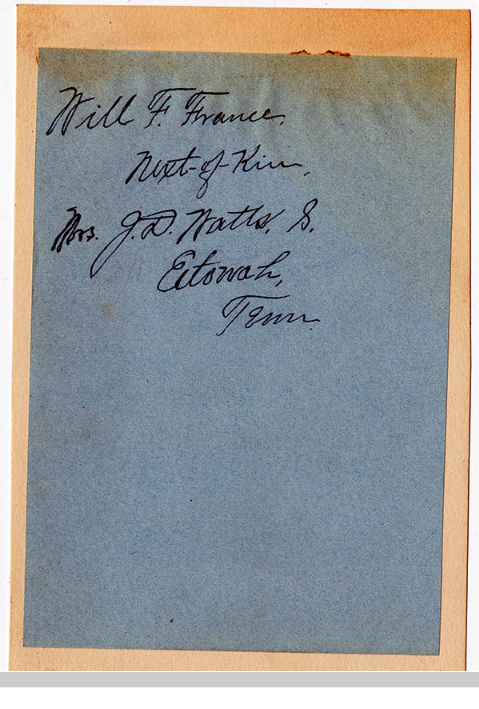 Will F. France.
Next-of-Kin.
Mrs. J.D. Watts, S.
Etowah,
Tenn.